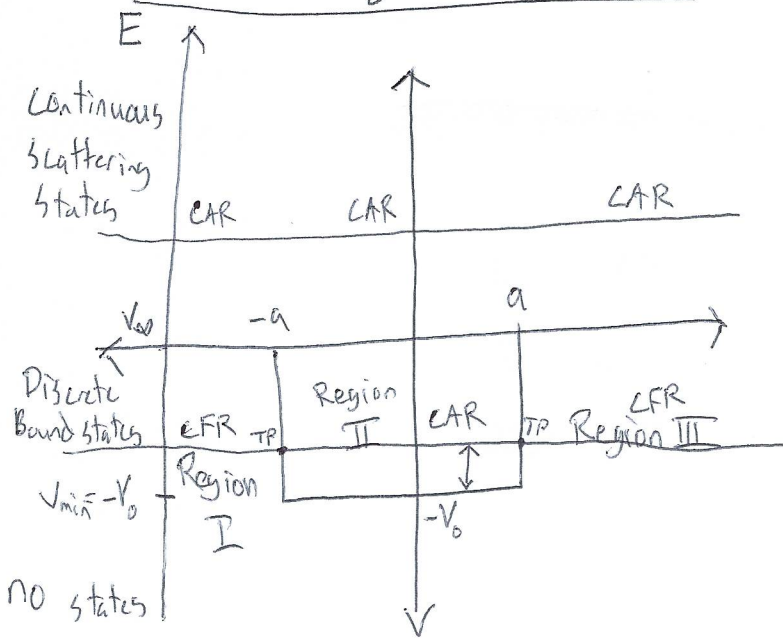 E
Continuous
Scattering
States
CAR CAR CAR
V∞ -a a
Discrete
Bound states
CFR TP Region II CAR TP CFR
Region III
Region I
Vmin = -V₀
-V₀
no states
V